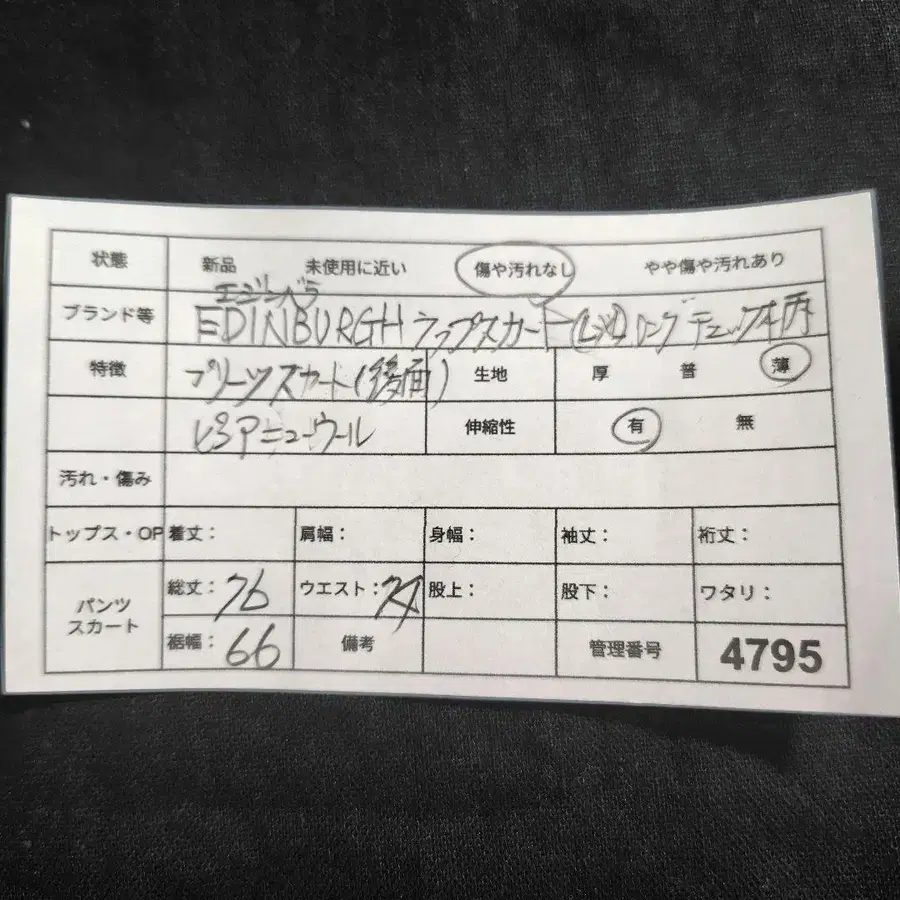 状態 新品 未使用に近い 傷や汚れなし やや傷や汚れあり
エジンバラ
ブランド等 EDINBURGH ラップスカート ロング チェック柄
特徴 プリーツスカート(後面) 生地 厚 普 薄
ピュアニューウール 伸縮性 有 無
汚れ・傷み
トップス・OP 着丈: 肩幅: 身幅: 袖丈: 裄丈:
パンツ スカート 総丈:76 ウエスト: 股上: 股下: ワタリ:
裾幅:66 備考 管理番号 4795